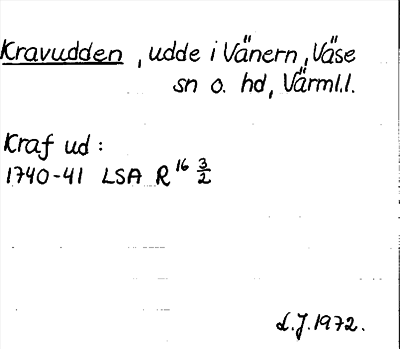 Kravudden, udde i Vänern, Väse
sn o. hd, Värml.l.
Kraf ud:
1740-41 LSA R 16 3/2
L.J. 1972.